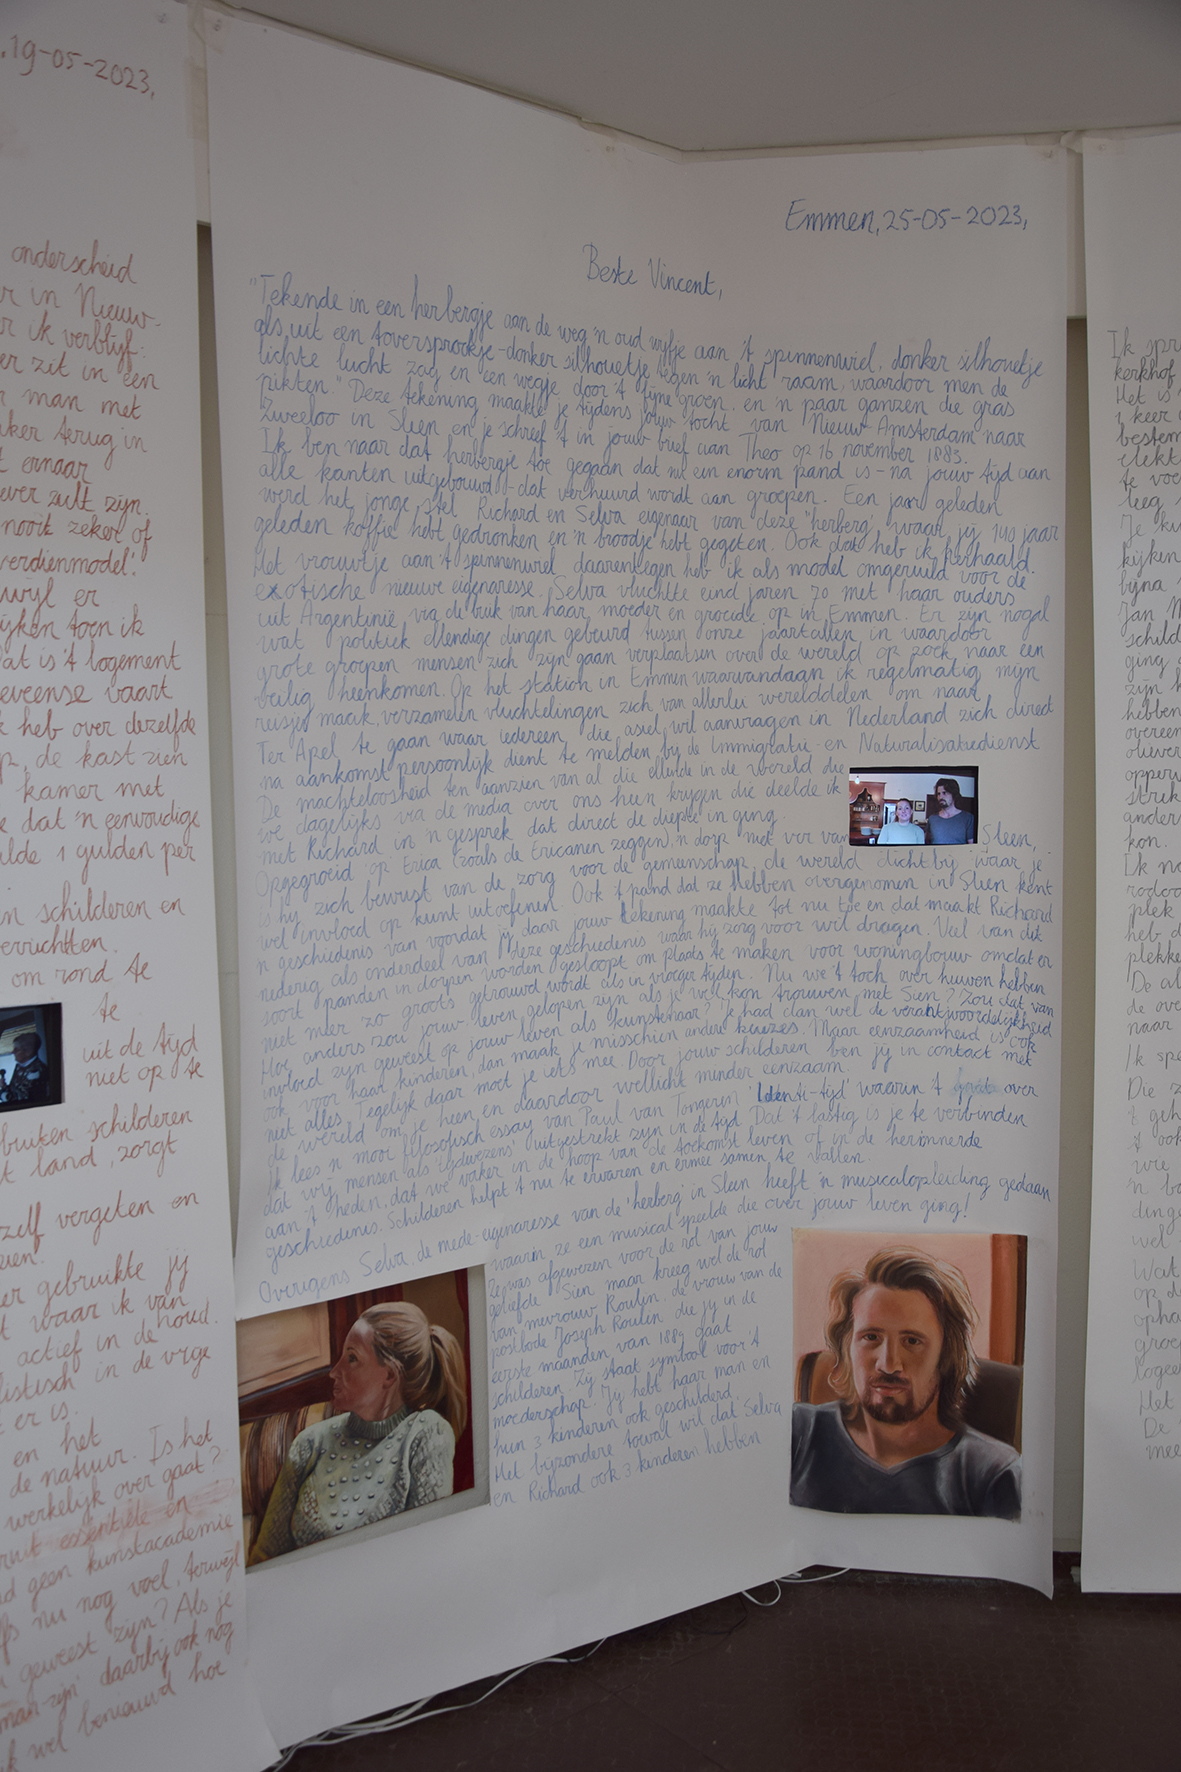 .19-05-2023,
onderscheid
r in Nieuw-
r ik verblijf:
er zit in een
r man met
ker terug in
t ernaar
ever zult zijn.
nooit zeker of
verdienmodel'.
wijl er
ijken toen ik
at is 't logement
eveense vaart
k heb over dezelfde
p, de kast zien
kamer met
e dat 'n eenvoudige
lde 1 gulden per
n schilderen en
om rond te
te
uit de tijd
niet op te
bruiken schilderen
t land, zorgt
zelf vergeten en
er gebruikte jij
t waar ik van
actief in de houd.
listisch in de vrije
t er is.
en het
de natuur. Is het
werkelijk over gaat?
ruit essentiële en
d geen kunstacademie
fs nu nog voel, terwijl
geweest zijn? Als je
man-zijn' daarbij ook nog
k wel benieuwd hoe
Emmen, 25-05-2023,
Beste Vincent,
"Tekende in een herbergje aan de weg 'n oud wijfje aan 't spinnenwiel, donker silhouetje
als uit een toversprookje - donker silhouetje tegen 'n licht raam, waardoor men de
lichte lucht zag en een wegje door 't fijne groen, en 'n paar ganzen die gras
pikten." Deze tekening maakte je tijdens jouw tocht van Nieuw-Amsterdam naar
Zweeloo in Sleen en je schreef 't in jouw brief aan Theo op 16 november 1883.
Ik ben naar dat herbergje toe gegaan dat nu een enorm pand is - na jouw tijd aan
alle kanten uitgebouwd - dat verhuurd wordt aan groepen. Een jaar geleden
werd het jonge stel Richard en Selva eigenaar van deze "herberg", waar jij 140 jaar
geleden koffie hebt gedronken en 'n broodje hebt gegeten. Ook dat heb ik herhaald.
Het vrouwtje aan 't spinnenwiel daarentegen heb ik als model omgeruild voor de
exotische nieuwe eigenaresse. Selva vluchtte eind jaren 70 met haar ouders
uit Argentinië via de buik van haar moeder en groeide op in Emmen. Er zijn nogal
wat politiek ellendige dingen gebeurd tussen onze jaartallen in waardoor
grote groepen mensen zich zijn gaan verplaatsen over de wereld op zoek naar een
veilig heenkomen. Op het station in Emmen waarvandaan ik regelmatig mijn
reisjes maak, verzamelen vluchtelingen zich van allerlei werelddelen om naar
Ter Apel te gaan waar iedereen die asiel wil aanvragen in Nederland zich direct
na aankomst persoonlijk dient te melden bij de Immigratie- en Naturalisatiedienst
De machteloosheid ten aanzien van al die ellende in de wereld die
we dagelijks via de media over ons heen krijgen die deelde ik
met Richard in 'n gesprek dat direct de diepte in ging.
Opgegroeid 'op' Erica (zoals de Ericanen zeggen), 'n dorp niet ver van Sleen,
is hij zich bewust van de zorg voor de gemeenschap, de wereld dichtbij waar je
wel invloed op kunt uitoefenen. Ook 't pand dat ze hebben overgenomen in Sleen kent
'n geschiedenis van voordat jij daar jouw tekening maakte tot nu toe en dat maakt Richard
nederig als onderdeel van deze geschiedenis waar hij zorg voor wil dragen. Veel van dit
soort panden in dorpen worden gesloopt om plaats te maken voor woningbouw omdat er
niet meer zo groots getrouwd wordt als in vroeger tijden. Nu we 't toch over huwen hebben
Hoe anders zou jouw leven gelopen zijn als je wel kon trouwen met Sien? Zou dat van
invloed zijn geweest op jouw leven als kunstenaar? Je had dan wel de verantwoordelijkheid
ook voor haar kinderen, dan maak je misschien andere keuzes. Maar eenzaamheid is ook
niet alles. Tegelijk daar moet je iets mee. Door jouw schilderen ben jij in contact met
de wereld om je heen, en daardoor wellicht minder eenzaam.
Ik lees 'n mooi filosofisch essay van Paul van Tongeren 'Identi-tijd' waarin 't gaat over
dat wij mensen als 'tijdwezens' uitgestrekt zijn in de tijd. Dat 't lastig is je te verbinden
aan 't heden, dat we vaker in de hoop van de toekomst leven of in de herinnerde
geschiedenis. Schilderen helpt 't nu te ervaren en ermee samen te vallen.
Overigens Selva, de mede-eigenaresse van de 'herberg' in Sleen heeft 'n musicalopleiding gedaan
waarin ze een musical speelde die over jouw leven ging!
Ze was afgewezen voor de rol van jouw
geliefde Sien maar kreeg wel de rol
van mevrouw Roulin, de vrouw van de
postbode Joseph Roulin die jij in de
eerste maanden van 1889 gaat
schilderen. Zij staat symbool voor 't
moederschap. Jij hebt haar man en
hun 3 kinderen ook geschilderd.
Het bijzondere toeval wil dat Selva
en Richard ook 3 kinderen hebben
Ik spr
kerkhof
Het is
1 keer
bestem
elekt
te voe
leeg
Je ku
kijken
bijna
Jan
schild
ging
zijn
hebben
overeen
oliever
opper
strek
ander
kon.
Ik no
rodoo
plek
heb d
plekke
De al
de ove
naar
Ik spe
Die z
't geh
't ook
wie
'n ba
dinge
wel
Wat
op de
opha
groep
logee
Het
De
mee